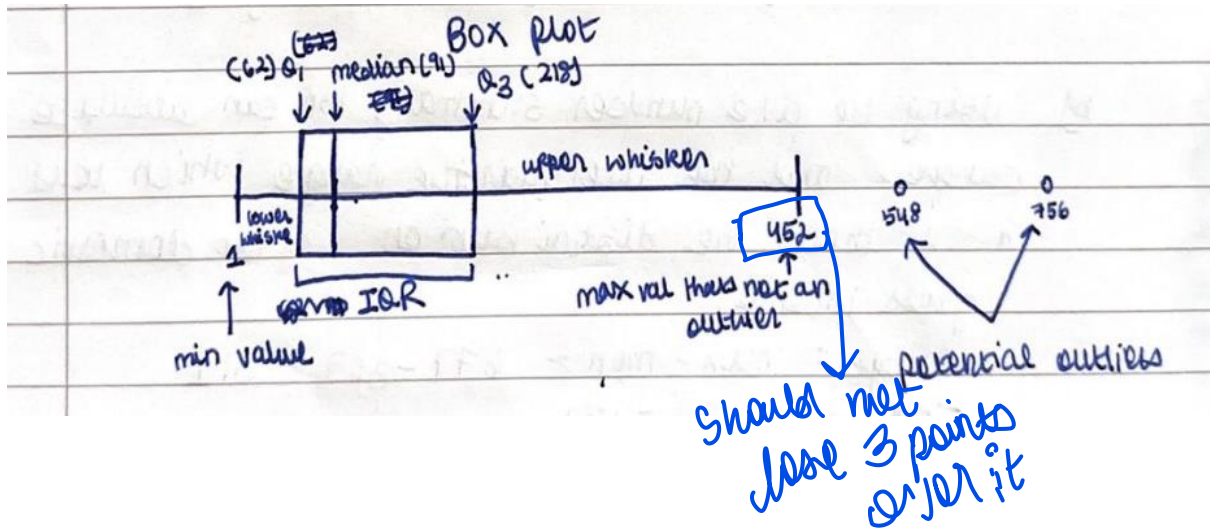 BOX PLOT
(62) Q1 median (91) Q3 (218)
upper whisker
lower
whiske
1
452
548
756
IQR
max val thats not an
outlier
min value
potential outliers
Should not
lose 3 points
over it